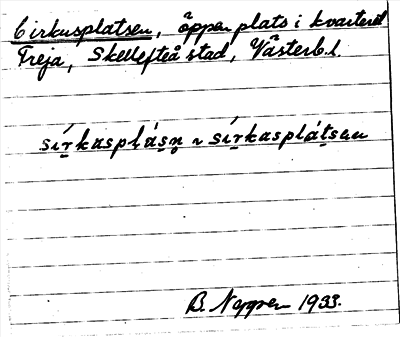 Cirkusplatsen, öppen plats i kvarteret
Freja, Skellefteå stad, Västerb.l.
sírkasplásn ~ sírkasplátsen
B. 1933.